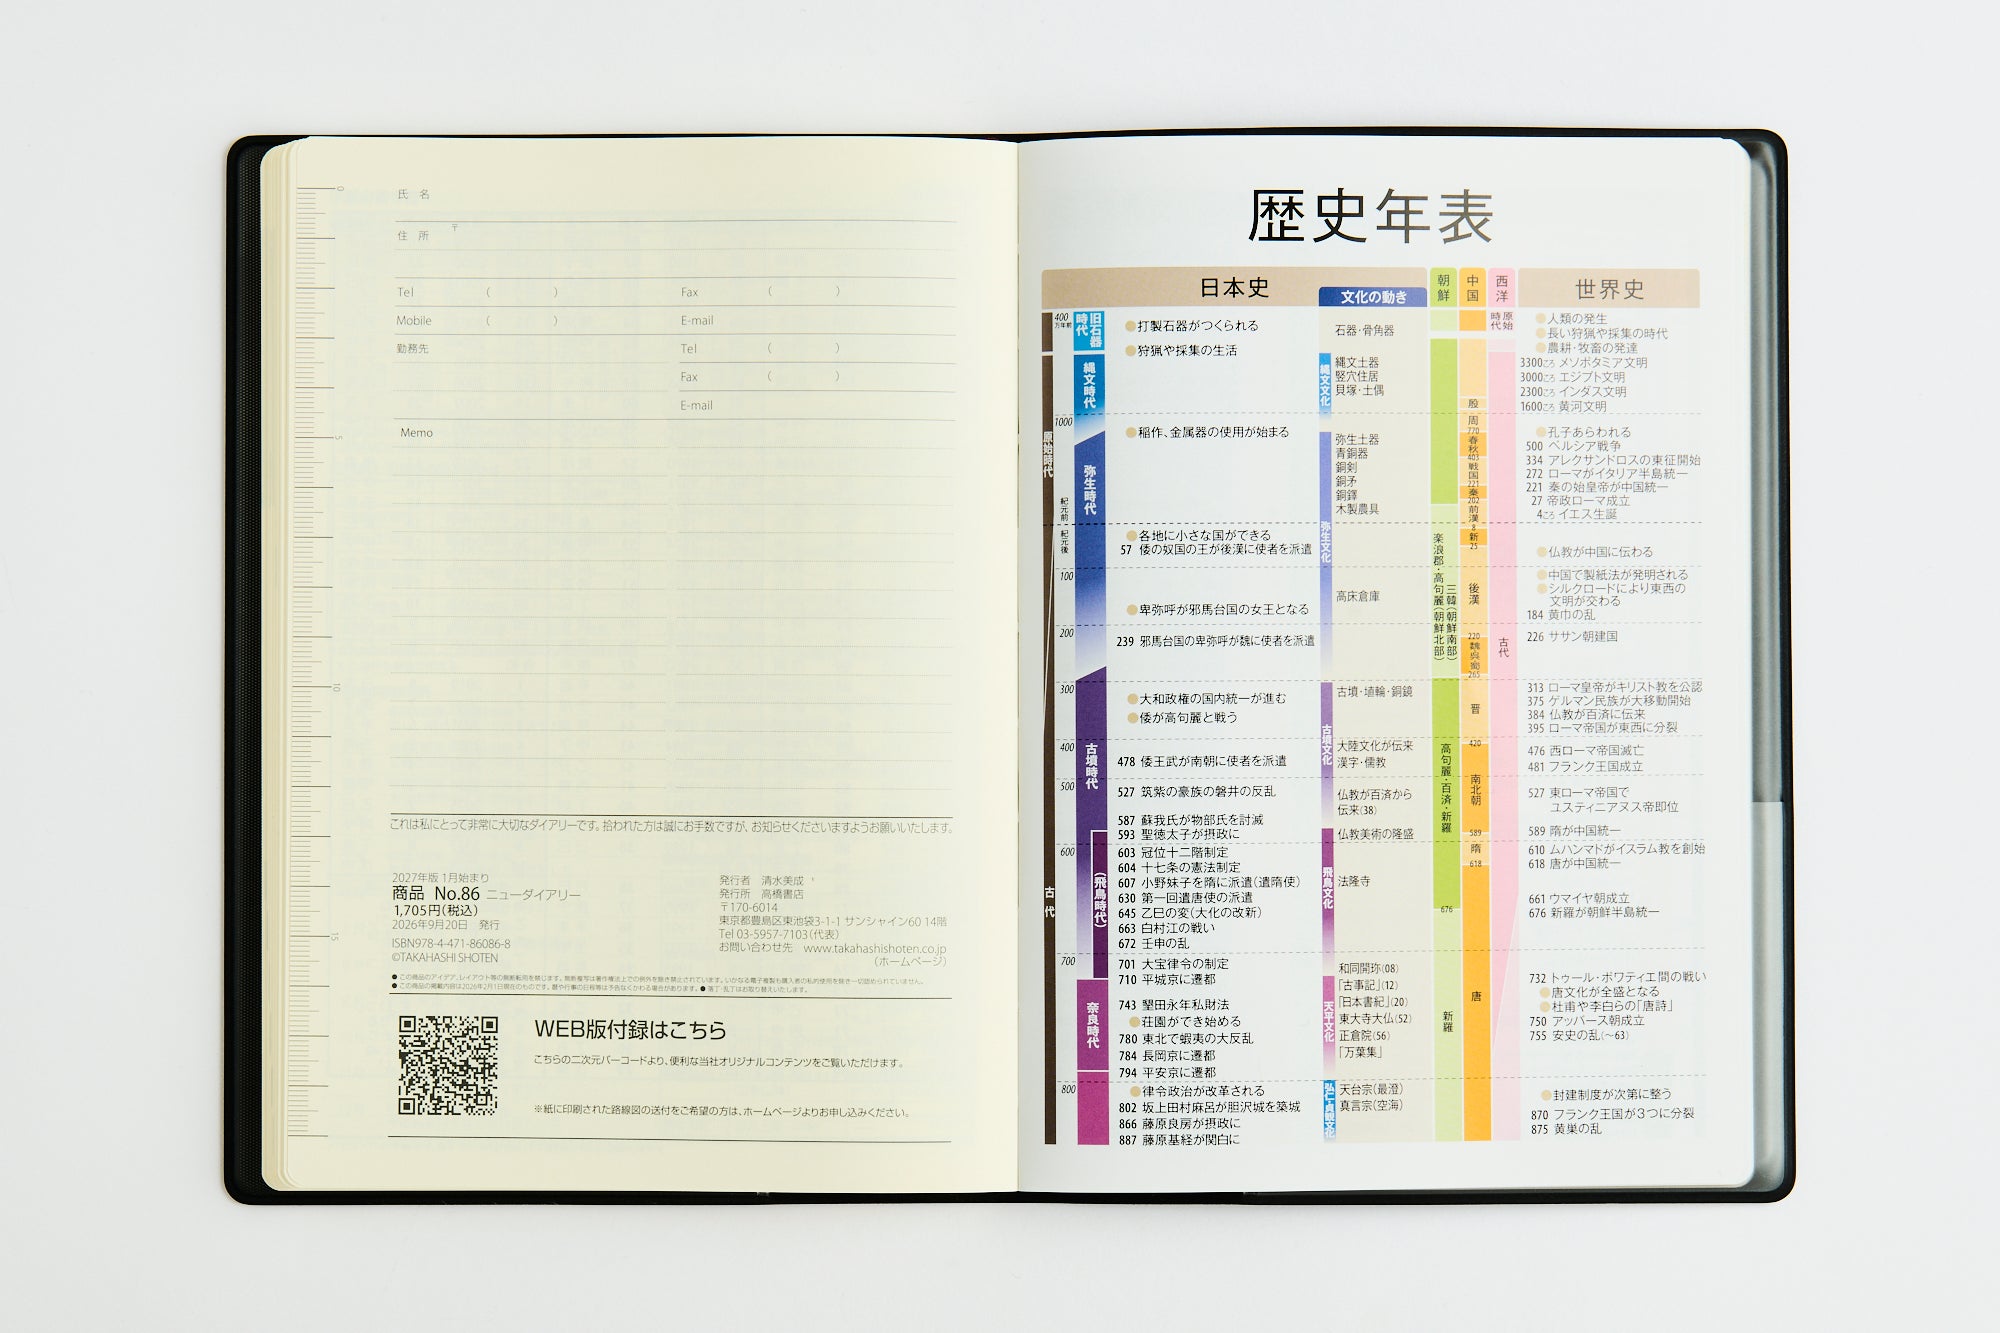 氏 名
住 所
〒
Tel ( ) Fax ( )
Mobile ( ) E-mail
勤務先 Tel ( )
Fax ( )
E-mail
Memo
0
5
10
15
これは私にとって非常に大切なダイアリーです。拾われた方は誠にお手数ですが、お知らせくださいますようお願いいたします。
2027年版 1月始まり
商品 No.86 ニューダイアリー
1,705円(税込)
2026年9月20日 発行
ISBN978-4-471-86086-8
©TAKAHASHI SHOTEN
発行者 清水美成
発行所 高橋書店
〒170-6014
東京都豊島区東池袋3-1-1 サンシャイン60 14階
Tel 03-5957-7103(代表)
お問い合わせ先 www.takahashishoten.co.jp
(ホームページ)
●この商品のアイデア、レイアウト等の無断転用を禁じます。無断複写は著作権法上での例外を除き禁止されています。いかなる電子複製も購入者の私的使用を除き一切認められていません。
●この商品の掲載内容は2026年2月1日現在のものです。暦や行事の日程等は予告なくかわる場合があります。●落丁・乱丁はお取り替えいたします。
WEB版付録はこちら
こちらの二次元バーコードより、便利な当社オリジナルコンテンツをご覧いただけます。
※紙に印刷された路線図の送付をご希望の方は、ホームページよりお申し込みください。
歴史年表
日本史
文化の動き
朝鮮
中国
西洋
世界史
400万年前
1000
紀元前
紀元後
100
200
300
400
500
600
700
800
原始時代
古代
旧石器時代
縄文時代
弥生時代
古墳時代
(飛鳥時代)
奈良時代
●打製石器がつくられる
●狩猟や採集の生活
●稲作、金属器の使用が始まる
●各地に小さな国ができる
57 倭の奴国の王が後漢に使者を派遣
●卑弥呼が邪馬台国の女王となる
239 邪馬台国の卑弥呼が魏に使者を派遣
●大和政権の国内統一が進む
●倭が高句麗と戦う
478 倭王武が南朝に使者を派遣
527 筑紫の豪族の磐井の反乱
587 蘇我氏が物部氏を討滅
593 聖徳太子が摂政に
603 冠位十二階制定
604 十七条の憲法制定
607 小野妹子を隋に派遣(遣隋使)
630 第一回遣唐使の派遣
645 乙巳の変(大化の改新)
663 白村江の戦い
672 壬申の乱
701 大宝律令の制定
710 平城京に遷都
743 墾田永年私財法
●荘園ができ始める
780 東北で蝦夷の大反乱
784 長岡京に遷都
794 平安京に遷都
●律令政治が改革される
802 坂上田村麻呂が胆沢城を築城
866 藤原良房が摂政に
887 藤原基経が関白に
縄文文化
弥生文化
古墳文化
飛鳥文化
天平文化
弘仁・貞観文化
石器・骨角器
縄文土器
竪穴住居
貝塚・土偶
弥生土器
青銅器
銅剣
銅矛
銅鐸
木製農具
高床倉庫
古墳・埴輪・銅鏡
大陸文化が伝来
漢字・儒教
仏教が百済から
伝来(38)
仏教美術の隆盛
法隆寺
和同開珎(08)
「古事記」(12)
「日本書紀」(20)
東大寺大仏(52)
正倉院(56)
「万葉集」
天台宗(最澄)
真言宗(空海)
楽浪郡・高句麗(朝鮮北部)
三韓(朝鮮南部)
高句麗・百済・新羅
676
新羅
殷
周
770
春秋
403
戦国
221
秦
202
前漢
8
新
25
後漢
220
魏呉蜀
265
晋
420
南北朝
589
隋
618
唐
原始時代
古代
●人類の発生
●長い狩猟や採集の時代
●農耕・牧畜の発達
3300ごろ メソポタミア文明
3000ごろ エジプト文明
2300ごろ インダス文明
1600ごろ 黄河文明
●孔子あらわれる
500 ペルシア戦争
334 アレクサンドロスの東征開始
272 ローマがイタリア半島統一
221 秦の始皇帝が中国統一
27 帝政ローマ成立
4ごろ イエス生誕
●仏教が中国に伝わる
●中国で製紙法が発明される
●シルクロードにより東西の
文明が交わる
184 黄巾の乱
226 ササン朝建国
313 ローマ皇帝がキリスト教を公認
375 ゲルマン民族が大移動開始
384 仏教が百済に伝来
395 ローマ帝国が東西に分裂
476 西ローマ帝国滅亡
481 フランク王国成立
527 東ローマ帝国で
ユスティニアヌス帝即位
589 隋が中国統一
610 ムハンマドがイスラム教を創始
618 唐が中国統一
661 ウマイヤ朝成立
676 新羅が朝鮮半島統一
732 トゥール・ポワティエ間の戦い
●唐文化が全盛となる
●杜甫や李白らの「唐詩」
750 アッバース朝成立
755 安史の乱(〜63)
●封建制度が次第に整う
870 フランク王国が3つに分裂
875 黄巣の乱